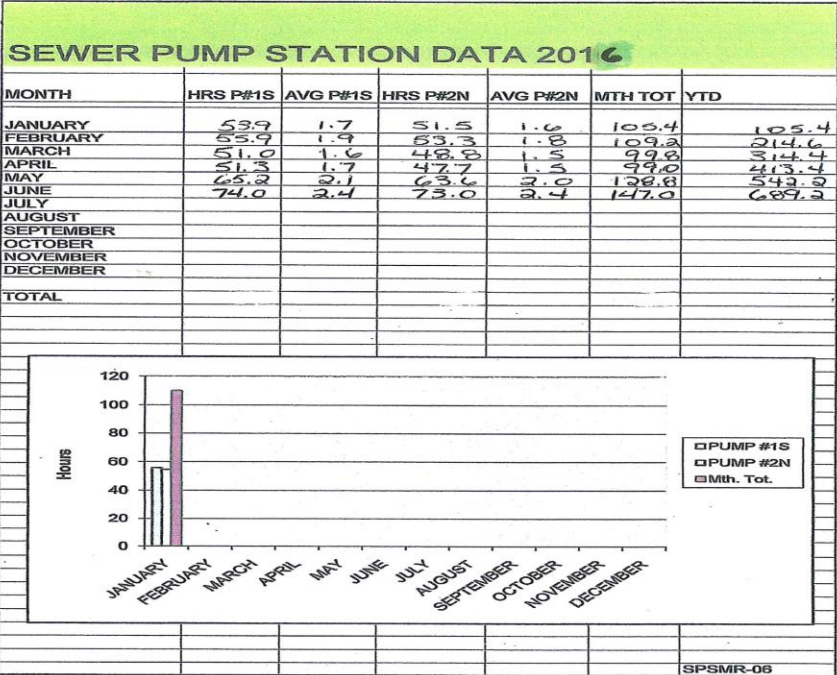 SEWER PUMP STATION DATA 2016
MONTH HRS P#1S AVG P#1S HRS P#2N AVG P#2N MTH TOT YTD
JANUARY 53.9 1.7 51.5 1.6 105.4 105.4
FEBRUARY 55.9 1.9 53.3 1.8 109.2 214.6
MARCH 51.0 1.6 48.8 1.5 99.8 314.4
APRIL 51.3 1.7 47.7 1.5 99.0 413.4
MAY 65.2 2.1 63.6 2.0 128.8 542.2
JUNE 74.0 2.4 73.0 2.4 147.0 689.2
JULY
AUGUST
SEPTEMBER
OCTOBER
NOVEMBER
DECEMBER
TOTAL
120
100
80
60
40
20
0
Hours
JANUARY FEBRUARY MARCH APRIL MAY JUNE JULY AUGUST SEPTEMBER OCTOBER NOVEMBER DECEMBER
PUMP #1S
PUMP #2N
Mth. Tot.
SPSMR-06